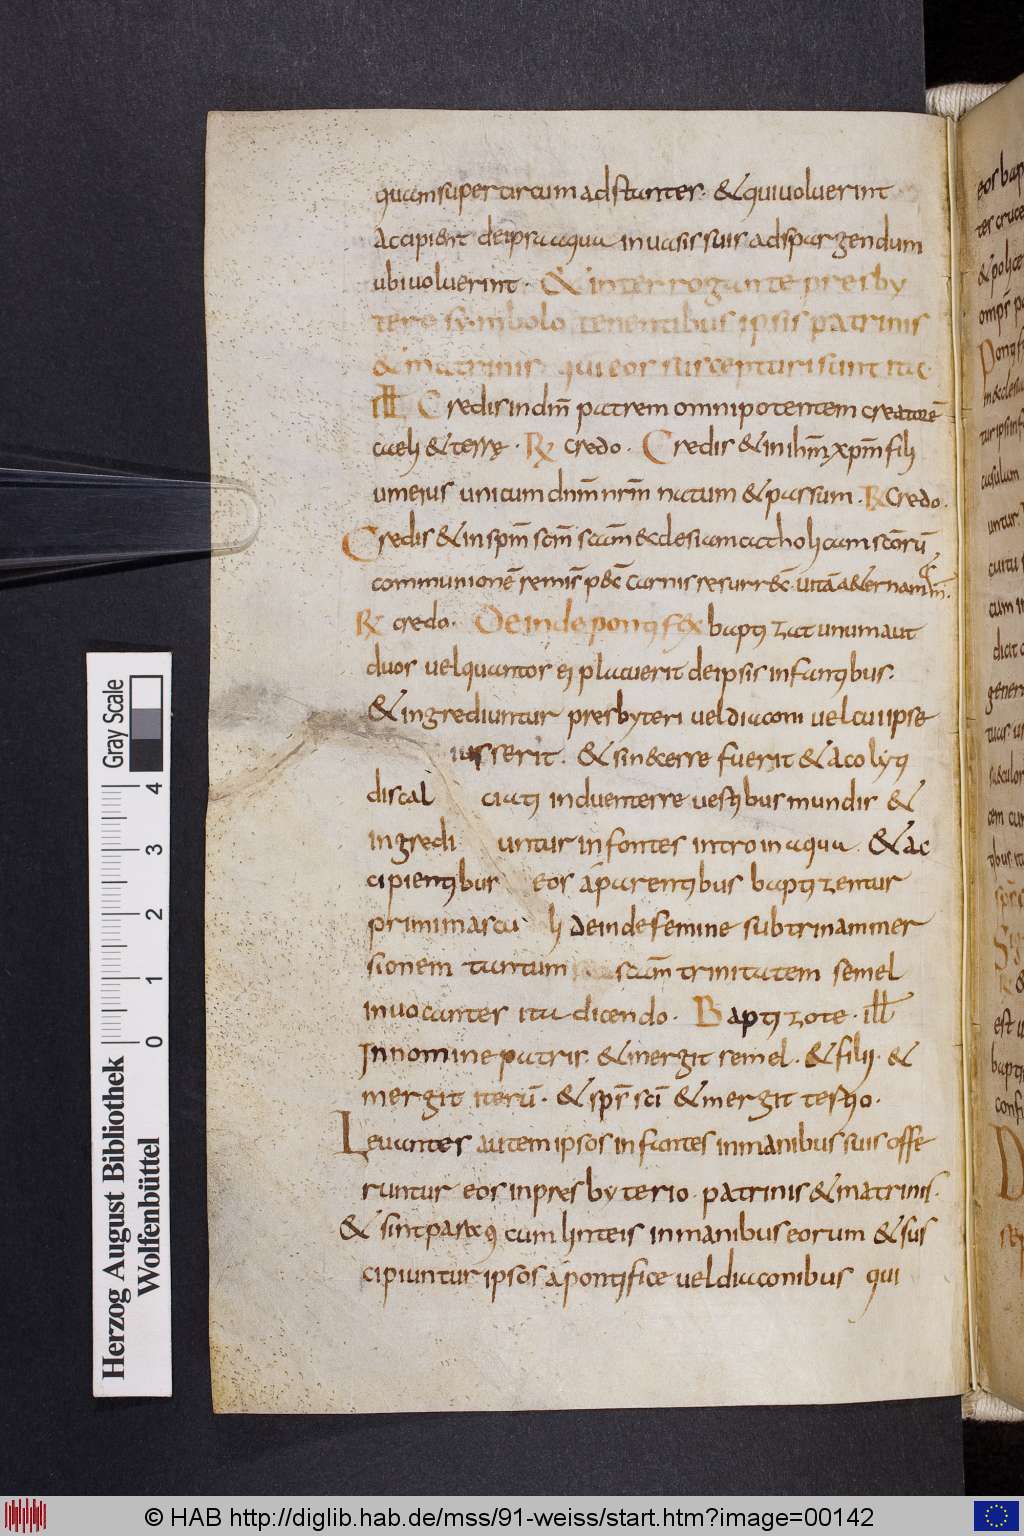 quam super circum adstantes. & qui uoluerint
Accipient de ipsa aqua in uasis suis ad spargendum
ubi uoluerint. & interrogante presby
tero symbolo tenentibus ipsis patrinis
& matrinis qui eos suscepturi sunt ita.
ill Credis in dm̄ patrem omnipotentem creatorē
caeli & terrę. R̷ credo. Credis & in ihm̄ xpm̄ filii
um eius unicum dnm̄ nr̄m natum & passum. R̷ Credo.
Credis & in spm̄ scm̄ scam̄ & clesiam catholicam scōrū
communionē remis̄ pec̄ carnis resurr&c̄. uitā a&ernam
R̷ credo. Deinde pontifex baptizat unum aut
duos uel quantos ei placuerit de ipsis infantibus.
& ingrediuntur presbyteri uel diaconi uel cui ipse
iusserit. & si necesse fuerit & acolyti
discal ciati induentes se uestibus mundis &
ingredi untur in fontes intro in aqua. & ac
cipientibus eos a parentibus baptizentur
primi mascu li deinde femine sub trina mer
sionem tantum scam̄ trinitatem semel
inuocantes ita dicendo. Baptizo te. ill
In nomine patris. & mergit semel. & filii. &
mergit iterū. & sps̄ sci̅ & mergit tertio.
Leuantes autem ipsos infantes in manibus suis offe
runtur eos in presbyterio. patrinis & matrinis.
& sint parati cum linteis in manibus eorum & sus
cipiuntur ipsos a pontifice uel diaconibus qui
Herzog August Bibliothek
Wolfenbüttel
Gray Scale
0 1 2 3 4
© HAB http://diglib.hab.de/mss/91-weiss/start.htm?image=00142